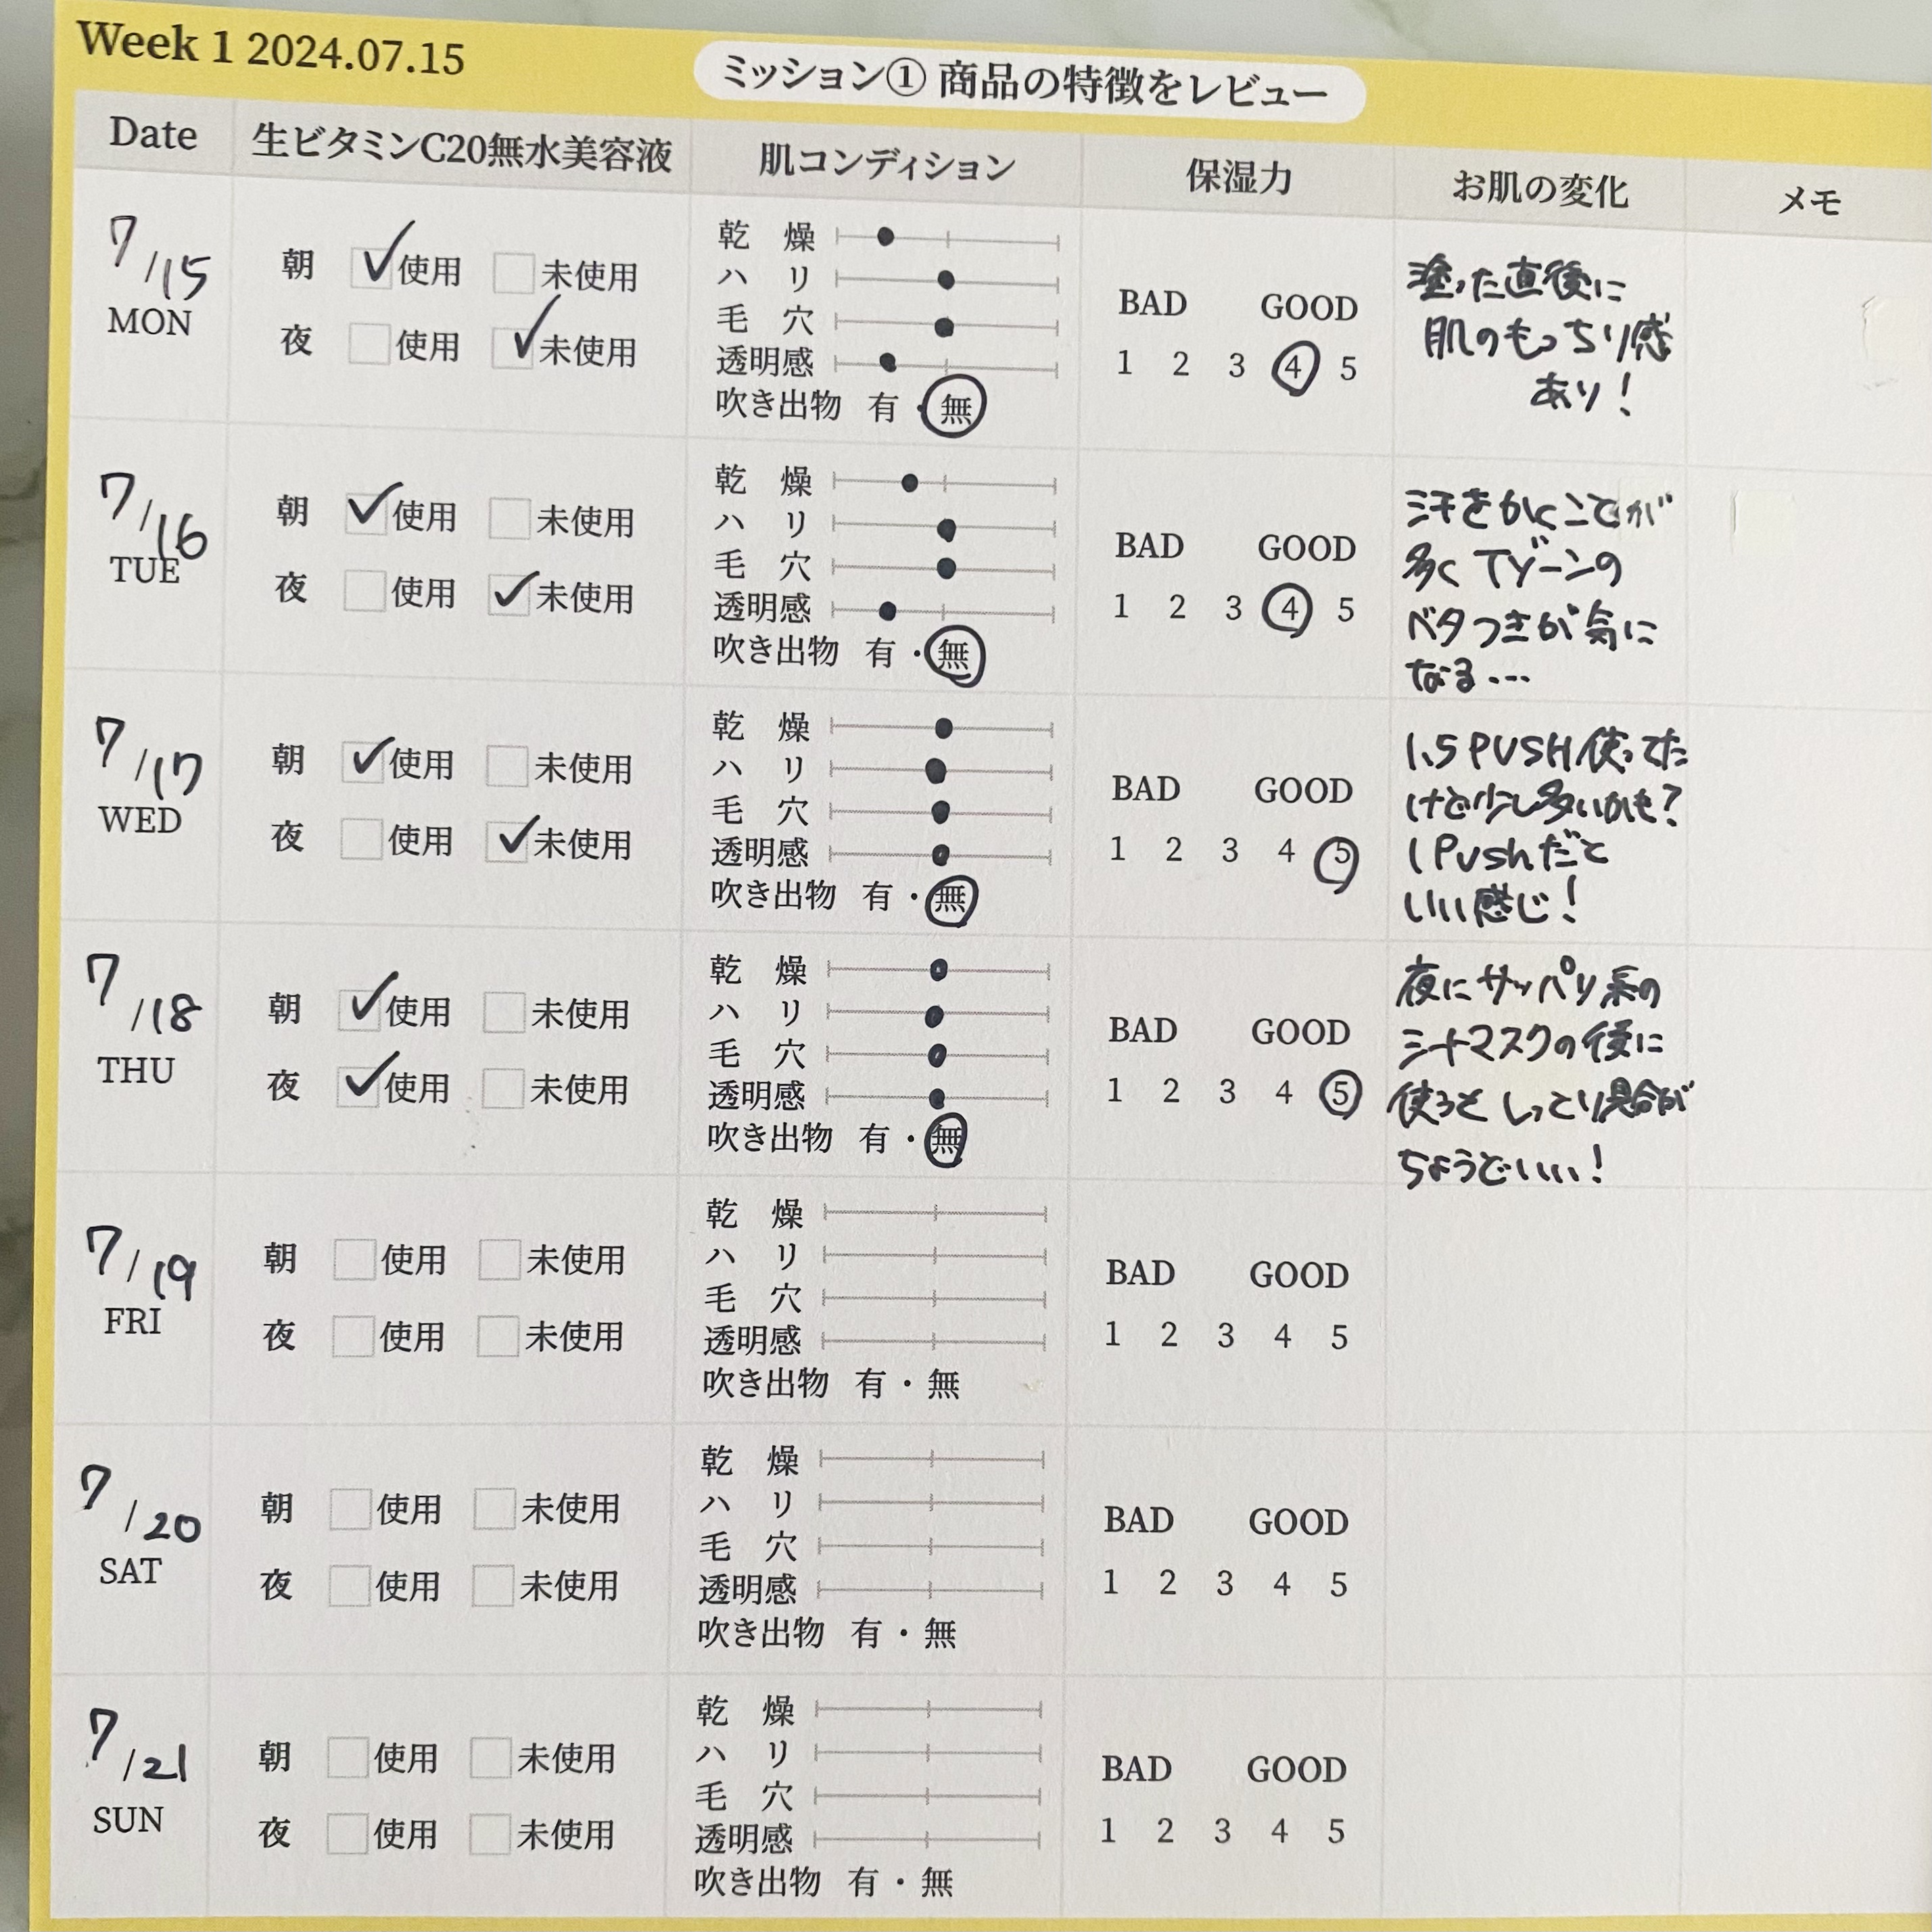 Week 1 2024.07.15
ミッション① 商品の特徴をレビュー
Date 生ビタミンC20無水美容液 肌コンディション 保湿力 お肌の変化 メモ
7/15
MON
朝 使用 未使用
夜 使用 未使用
乾 燥
ハ リ
毛 穴
透明感
吹き出物 有・無
BAD GOOD
1 2 3 4 5
塗った直後に
肌のもっちり感
あり!
7/16
TUE
朝 使用 未使用
夜 使用 未使用
乾 燥
ハ リ
毛 穴
透明感
吹き出物 有・無
BAD GOOD
1 2 3 4 5
汗をかくことが
多くTゾーンの
ベタつきが気に
なる...
7/17
WED
朝 使用 未使用
夜 使用 未使用
乾 燥
ハ リ
毛 穴
透明感
吹き出物 有・無
BAD GOOD
1 2 3 4 5
1.5 PUSH使ってた
けど少し多いかも?
1 Pushだと
いい感じ!
7/18
THU
朝 使用 未使用
夜 使用 未使用
乾 燥
ハ リ
毛 穴
透明感
吹き出物 有・無
BAD GOOD
1 2 3 4 5
夜にサッパリ系の
シートマスクの後に
使うと しっとり具合が
ちょうどいい!
7/19
FRI
朝 使用 未使用
夜 使用 未使用
乾 燥
ハ リ
毛 穴
透明感
吹き出物 有・無
BAD GOOD
1 2 3 4 5
7/20
SAT
朝 使用 未使用
夜 使用 未使用
乾 燥
ハ リ
毛 穴
透明感
吹き出物 有・無
BAD GOOD
1 2 3 4 5
7/21
SUN
朝 使用 未使用
夜 使用 未使用
乾 燥
ハ リ
毛 穴
透明感
吹き出物 有・無
BAD GOOD
1 2 3 4 5